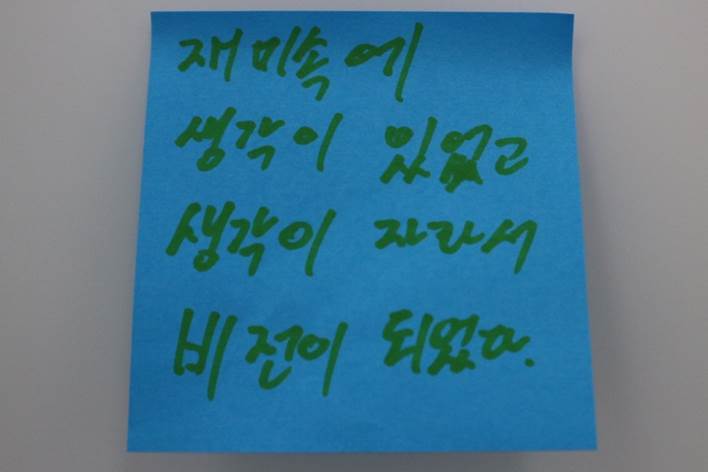 재미속에
생각이 있었고
생각이 자라서
비전이 되었다.